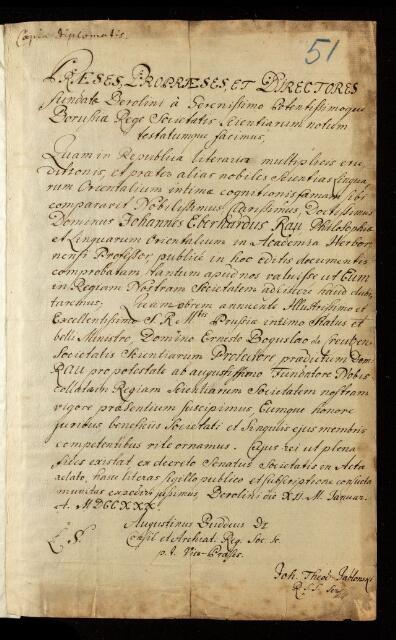 Copia diplomatis.
51
PRÆSES, PROPRÆSES, ET DIRECTORES
fundatæ Berolini à Serenissimo Potentissimoque
Borussiæ Rege Societatis Scientiarum notum
testatumque facimus,
Quam in Republica literaria multiplicis eru-
ditionis, et præter alias nobiles Scientias lingua-
rum Orientalium intimæ cognitionis famam sibi
comparavit Nobilissimus, Clarissimus, Doctissimus
Dominus Johannes Eberhardus Rau Philosophiæ
et Linguarum Orientalium in Academia Herbor-
nensi Professor, publicè in hoc editis documentis
comprobatum, tantum apud nos valuisse ut Eum
in Regiam Nostram Societatem adsciscere haud dubi-
taremus. Quamobrem annuente Illustrissimo et
Excellentissimo S. R. Mtis Prussiæ intimo Status et
belli Ministro, Domino Ernesto Boguslao de Creutzen
Societatis Scientiarum Protectore prædictum Dom.
RAU pro potestate ab augustissimo Fundatore Nobis
collatæ in Regiam Scientiarum Societatem nostram
vigore præsentium suscipimus, Eumque honore
juribus, beneficiis Societati et Singulis ejus membris
competentibus rite ornamus. Cujus rei ut plena
fides existat, ex decreto Senatus Societatis in Acta
relato, hasce literas sigillo publico et subscriptione consueta
munitas exhiberi jussimus. Berolini die XII. M. Januar.
A. MDCCXXX.
Augustinus Buddeus Dr
Consil. et Archiat. Reg. Soc. Sc.
p. t. Vice-Præses.
L. S.
Joh. Theod. Jablonski
R. S. S. Secr.